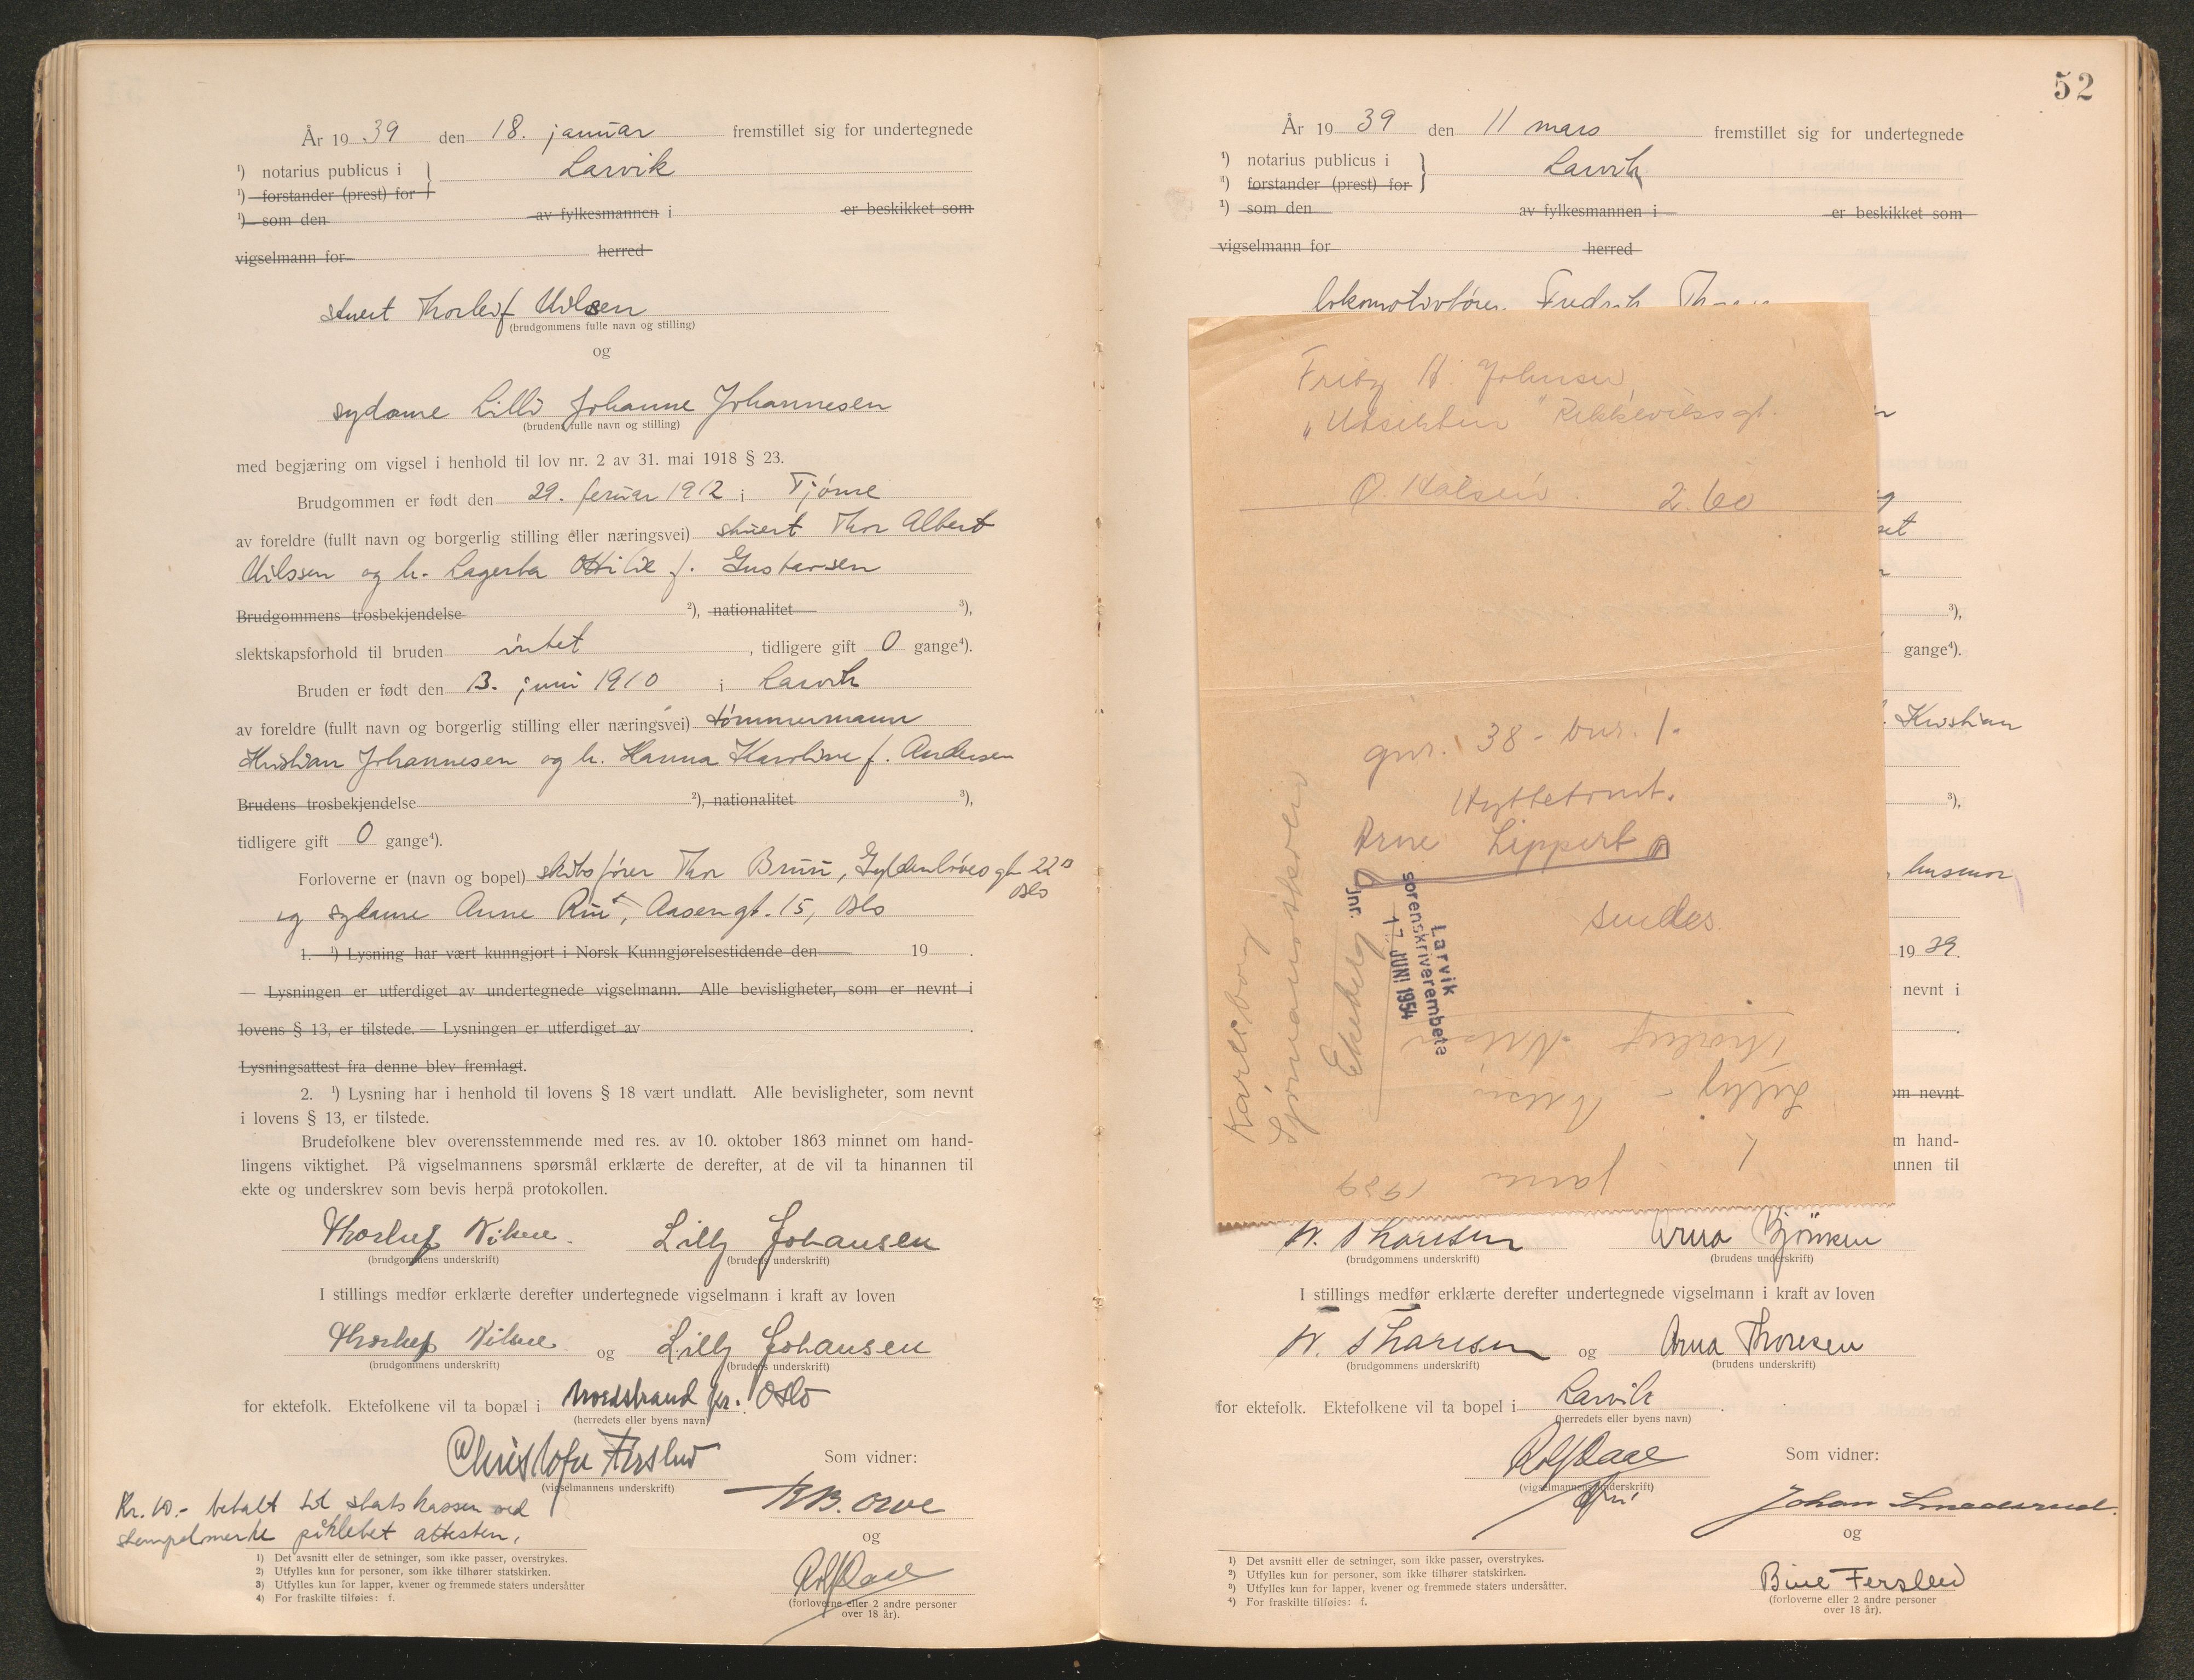 År 19 39 den 18. januar fremstillet sig for undertegnede
¹) notarius publicus i } Larvik
¹) forstander (prest) for
¹) som den av fylkesmannen i er beskikket som
vigselmann for herred
stuert Thorleif Nilsen
(brudgommens fulle navn og stilling)
og
sydame Lilli Johanne Johannesen
(brudens fulle navn og stilling)
med begjæring om vigsel i henhold til lov nr. 2 av 31. mai 1918 § 23.
Brudgommen er født den 29. feruar 1912 i Tjöme
av foreldre (fullt navn og borgerlig stilling eller næringsvei) stuert Thor Albert
Nilssen og h. Lagertha Ottilie f. Gustavsen
Brudgommens trosbekjendelse ²), nationalitet ³),
slektskapsforhold til bruden intet , tidligere gift 0 gange⁴).
Bruden er født den 13. juni 1910 i Larvik
av foreldre (fullt navn og borgerlig stilling eller næringsvei) tömmermann
Kristian Johannesen og h. Hanna Karoline f. Andersen
Brudens trosbekjendelse ²), nationalitet ³),
tidligere gift 0 gange⁴).
Forloverne er (navn og bopel) skibsförer Thor Bruu, Gyldenlöves gt 22 B
Oslo
og sydame Anne Ruu, Aasengt. 15, Oslo
1. ¹) Lysning har vært kunngjort i Norsk Kunngjørelsestidende den 19 .
— Lysningen er utferdiget av undertegnede vigselmann. Alle bevisligheter, som er nevnt i
lovens § 13, er tilstede. — Lysningen er utferdiget av .
Lysningsattest fra denne blev fremlagt.
2. ¹) Lysning har i henhold til lovens § 18 vært undlatt. Alle bevisligheter, som nevnt
i lovens § 13, er tilstede.
Brudefolkene blev overensstemmende med res. av 10. oktober 1863 minnet om hand-
lingens viktighet. På vigselmannens spørsmål erklærte de derefter, at de vil ta hinannen til
ekte og underskrev som bevis herpå protokollen.
Thorleif Nilsen. Lilly Johansen
(brudgommens underskrift) (brudens underskrift)
I stillings medfør erklærte derefter undertegnede vigselmann i kraft av loven
Thorleif Nilsen og Lilly Johansen
(brudgommens underskrift) (brudens underskrift)
for ektefolk. Ektefolkene vil ta bopæl i Nordstrand pr. Oslo
(herredets eller byens navn)
Christofer Ferslew Som vidner:
(vigselmannens underskrift)
Kr. 10.- betalt til statskassen ved
stempelmerke påklebet attesten.
og
Rolf Daae
(forloverne eller 2 andre personer
over 18 år).
1) Det avsnitt eller de setninger, som ikke passer, overstrykes.
2) Utfylles kun for personer, som ikke tilhører statskirken.
3) Utfylles kun for lapper, kvener og fremmede staters undersåtter
4) For fraskilte tilføies: f.
52
År 19 39 den 11 mars fremstillet sig for undertegnede
¹) notarius publicus i } Larvik
¹) forstander (prest) for
¹) som den av fylkesmannen i er beskikket som
vigselmann for herred
lokomotivförer Fredrik
O. Halsen 2.60
³),
gange⁴).
gnr. 38 - bnr. 1.
Kristian
Hyttetomt.
³),
Arne Lippert
husmor
sendes.
Larvik
sorenskriverembete
17 JUNI 1954
Jnr.
Karlsborg
Sjømannsskolen
Ekeberg
19 39.
nevnt i
Thorleif Nilsen
Lilly Nilsen
om nevnt
m hand-
annen til
januar 1939
Arna
(brudgommens underskrift) (brudens underskrift)
I stillings medfør erklærte derefter undertegnede vigselmann i kraft av loven
og Arna Thoresen
(brudgommens underskrift) (brudens underskrift)
for ektefolk. Ektefolkene vil ta bopel i Larvik .
(herredets eller byens navn)
Rolf Daae Som vidner:
(vigselmannens underskrift)
Johan
og
Ferslew
(forloverne eller 2 andre personer
over 18 år).
¹) Det avsnitt eller de setninger, som ikke passer, overstrykes.
²) Utfylles kun for personer, som ikke tilhører statskirken.
³) Utfylles kun for lapper, kvener og fremmede staters undersåtter.
⁴) For fraskilte tilføies: f.